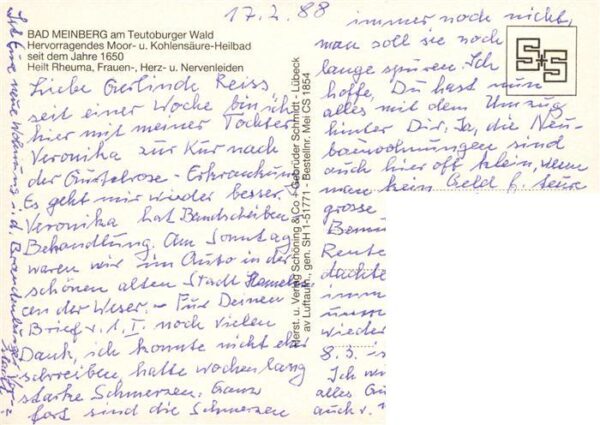 17.2.88
BAD MEINBERG am Teutoburger Wald
Hervorragendes Moor- u. Kohlensäure-Heilbad
seit dem Jahre 1650
Heilt Rheuma, Frauen-, Herz- u. Nervenleiden
Liebe Gerlinde Reiss,
seit einer Woche bin ich
hier mit meiner Tochter
Veronika zur Kur nach
der Gürtelrose-Erkrankung
Es geht mir wieder besser.
Veronika hat Bandscheiben
Behandlung. Am Sonntag
waren wir im Auto in der
schönen alten Stadt Hameln
an der Weser. - Für Deinen
Brief v. 1.I. noch vielen
Dank, ich konnte nicht eher
schreiben, hatte wochenlang
starke Schmerzen. Ganz
fort sind die Schmerzen
immer noch nicht,
man soll sie noch
lange spüren. Ich
hoffe, Du hast nun
alles mit dem Umzug
hinter Dir. Ja, die Neu-
bauwohnungen sind
auch hier oft klein, wenn
man kein Geld f. teure
grosse
Rente
dachte
imm
uns
wieder
8.3.
Ich
alles Gu
auch v.
Ist Eure neue Wohnung i. d. Brandenburger
Herst. u. Verlag Schöning & Co + Gebrüder Schmidt - Lübeck
av Luftaufn., gen. SH 1-51771 - Bestellnr. Mei CS 1854
S+S